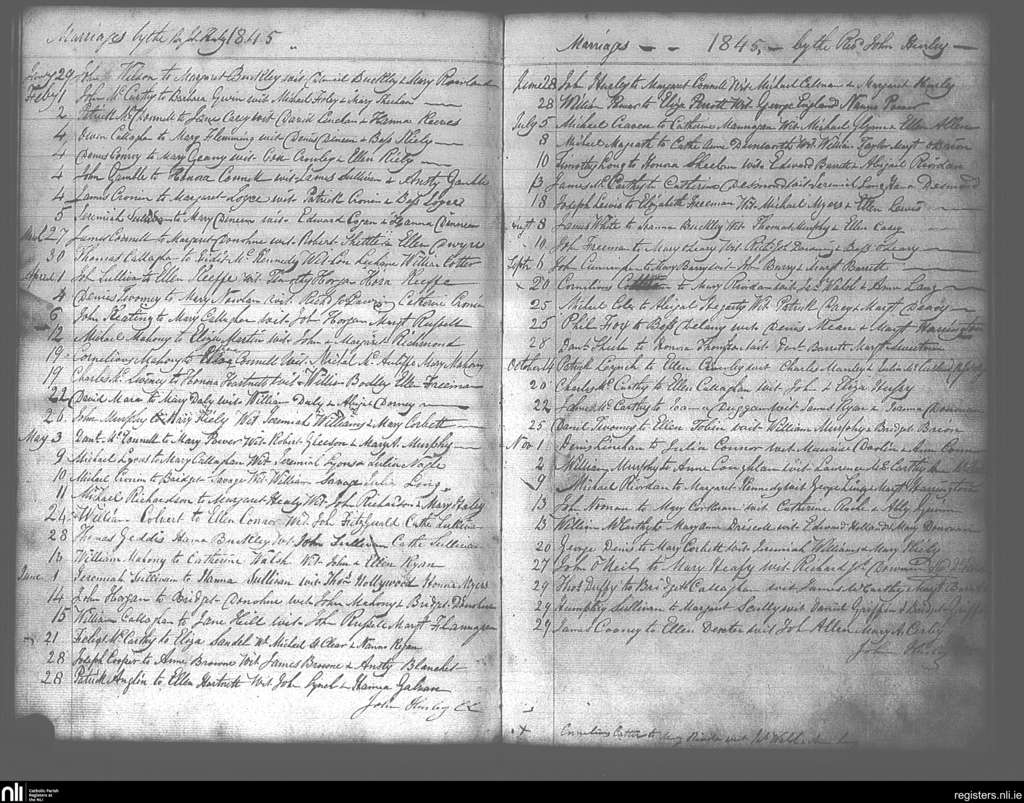 Marriages by the Rev. John Hurly 1845
Jany 29 John Wilson to Margaret Buckley wit. Daniel Buckley & Mary
Feby 1 John McCarthy to Barbara Gwin wit Michael Foley & Mary Sheehan
2 Patrick McDonnell to James Casey wit David & Hanna Reeves
4 Owen Callaghan to Mary Flemming wit Denis Dineen & Bess
4 Denis Conroy to Mary Geany wit Con Crowley & Ellen Kiely
4 John Gamble to Honora Connell wit James Sullivan & Ansty Gamble
4 James Cronin to Margaret Logee wit Patrick Cronin & Bess Logees
5 Jeremiah to Mary Dineen wit Edward Cogan & Hanna Dineen
27 James Connell to Margaret Donohue wit Robert & Ellen Dwyre
30 Thomas Callaghan to Kennedy Wit William Cotter
April 1 John Sullivan to Ellen Keeffe wit Timothy Horgan Keeffe
4 Denis Twomey to Mary Newlan wit Catherine Cronin
6 John Keating to Mary Callaghan wit John Horgan Margt Russell
12 Michael Mahony to Eliza Martin wit John & Margaret Richmond
19 Cornelius Mahony to Connell wit Michael McAuliffe Mary Mahony
19 Charles McSwiney to Honora Hartnett wit William Bodley Ellen Freeman
22 David Mara to Mary Daly wit William Daly & Abijel Dorney
26 John Murphy to Mary Kiely Wit Jeremiah Williams & Mary Corbett
May 3 Danl McConnell to Mary Power Wit Robert Gleeson & Mary A. Murphy
9 Michael Lyons to Mary Callaghan Wit Jeremiah Lyons & Julia Nagle
10 Michael Cronin to Bridget Savage Wit William Savage Julia Long
11 Michael Richardson to Margaret Healy Wit John Richardson & Mary Healy
24 William Colvert to Ellen Connor Wit John Fitzgerald Cathe
28 Thomas Geddis Hanna Buckley Wit John Sullivan Cathe Sullivan
William Mahony to Catherine Walsh Wit John & Ellen Ryan
June 1 Jeremiah Sullivan to Hanna Sullivan wit Thos Hollywood Honora Myers
14 John Hogan to Bridget Donohue wit John Mahony & Bridget Donohue
15 William Callaghan to Jane Hill wit John Russell Margt Flannagan
21 McCarthy to Eliza Michael St Clear & Nanno Regan
28 Joseph Cooper to Anne Browne Wit James Browne & Ansty Blanchet
28 Patrick Anglin to Ellen Hartnett Wit John Lynch & Hanna Galvan
John Hurly CC
Marriages — — 1845, — by the Revd John Hurly —
June 28 John Hurly to Margaret Connell Wit Michael Colman & Margaret Hurly
28 William Power to Eliza Perrott Wit George England Nanno Power
July 5 Michael Craven to Catherine Mannagan Wit Michael Flynn & Ellen Allen
8 Michael Magrath to Cathe Anne Wit William Taylor Margt
10 Timothy Long to Honora Sheehan wit Edward Barrett & Abigail Riordan
13 James McCarthy to Catherine Desmond wit Jeremiah Long Hana Desmond
18 Joseph Lewis to Elizabeth Freeman Wit Michael Myers & Ellen Lewis
Augt 8 James White to Joanna Buckley Wit Thomas Murphy & Ellen Casey
10 John Freeman to Mary Cleary Wit & Bess OLeary
Septr 6 John to Mary Barry wit John Barry & Margt Barrett
x 20 Cornelius to Mary Riordan wit Walsh & Anne Lang
25 Michael to Abigail Hegarty Wit Patrick Margt Deasy
25 Phil Foy to Bess Delany wit Denis Mean & Margt Harrington
28 Danl to Honora Thompson wit Danl Barrett Margt
October 14 Patrick to Ellen wit Charles Manly & Julia
20 Charles McCarthy to Ellen Callaghan wit John & Eliza Hurly
22 James McCarthy to Joanna Duggan wit James Ryan & Joanna
25 Daniel Twomey to Ellen Tobin wit William Murphy & Bridget Bacon
Novr 1 Denis Linehan to Julia Connor wit Maurice & Ann Connor
2 William Murphy to Anne Coughlan wit Laurence McCarthy
9 Michael Riordan to Margaret Kennedy wit George Margt Harrington
13 John Noonan to Mary Corkran wit Catherine Roche & Ally Lyman
13 William McCarthy to Maryann Driscoll wit Edward Mary Donovan
20 George Denis to Mary Corbett wit Jeremiah Williams & Mary Kiely
27 John O'Neil to Mary Heaffy wit Richard
29 Thos Duffy to Bridget Callaghan wit James McCarthy Mary A.
29 Humphry Sullivan to Margaret Scully wit Daniel Griffin &
29 James Cooney to Ellen wit John Allen Mary A.
John Hurly
x Cornelius Cotter to Mary Riordan wit
nli Catholic Parish
Registers at
the NLI
registers.nli.ie